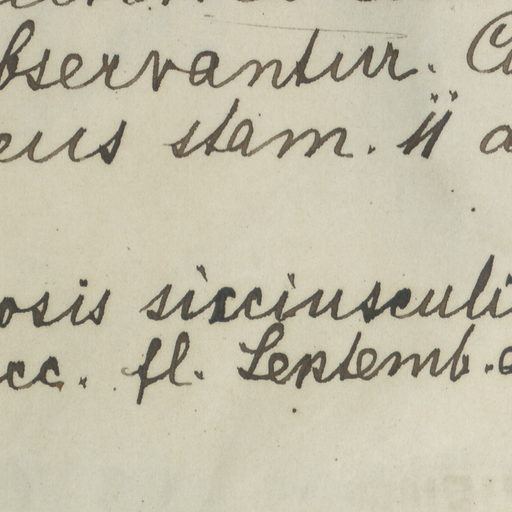 bservantur. C
eus stam. ii a
osis sicciusculi
cc. fl. Septemb.